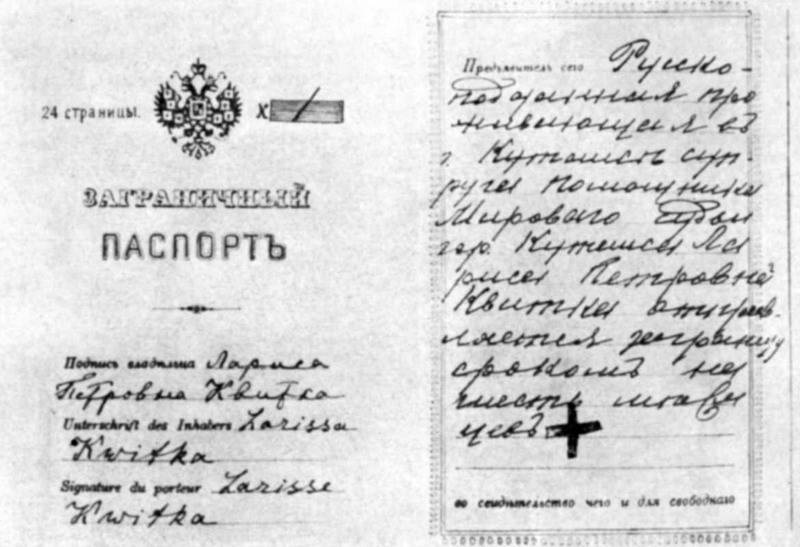 24 страницы.
X
ЗАГРАНИЧНЫЙ
ПАСПОРТЪ
Подпись владѣльца Лариса
Петровна Квитка
Unterschrift des Inhabers Larissa
Kwitka
Signature du porteur Larisse
Kwitka
Предъявитель сего Русско-
подданная про
живающая въ
г. Кутаисѣ суп-
руга помощника
Мироваго Судьи
гор. Кутаиса Ла
риса Петровна
Квитка отправ-
ляется заграницу
срокомъ на
шесть мѣся
цевъ
во свидѣтельство чего и для свободнаго